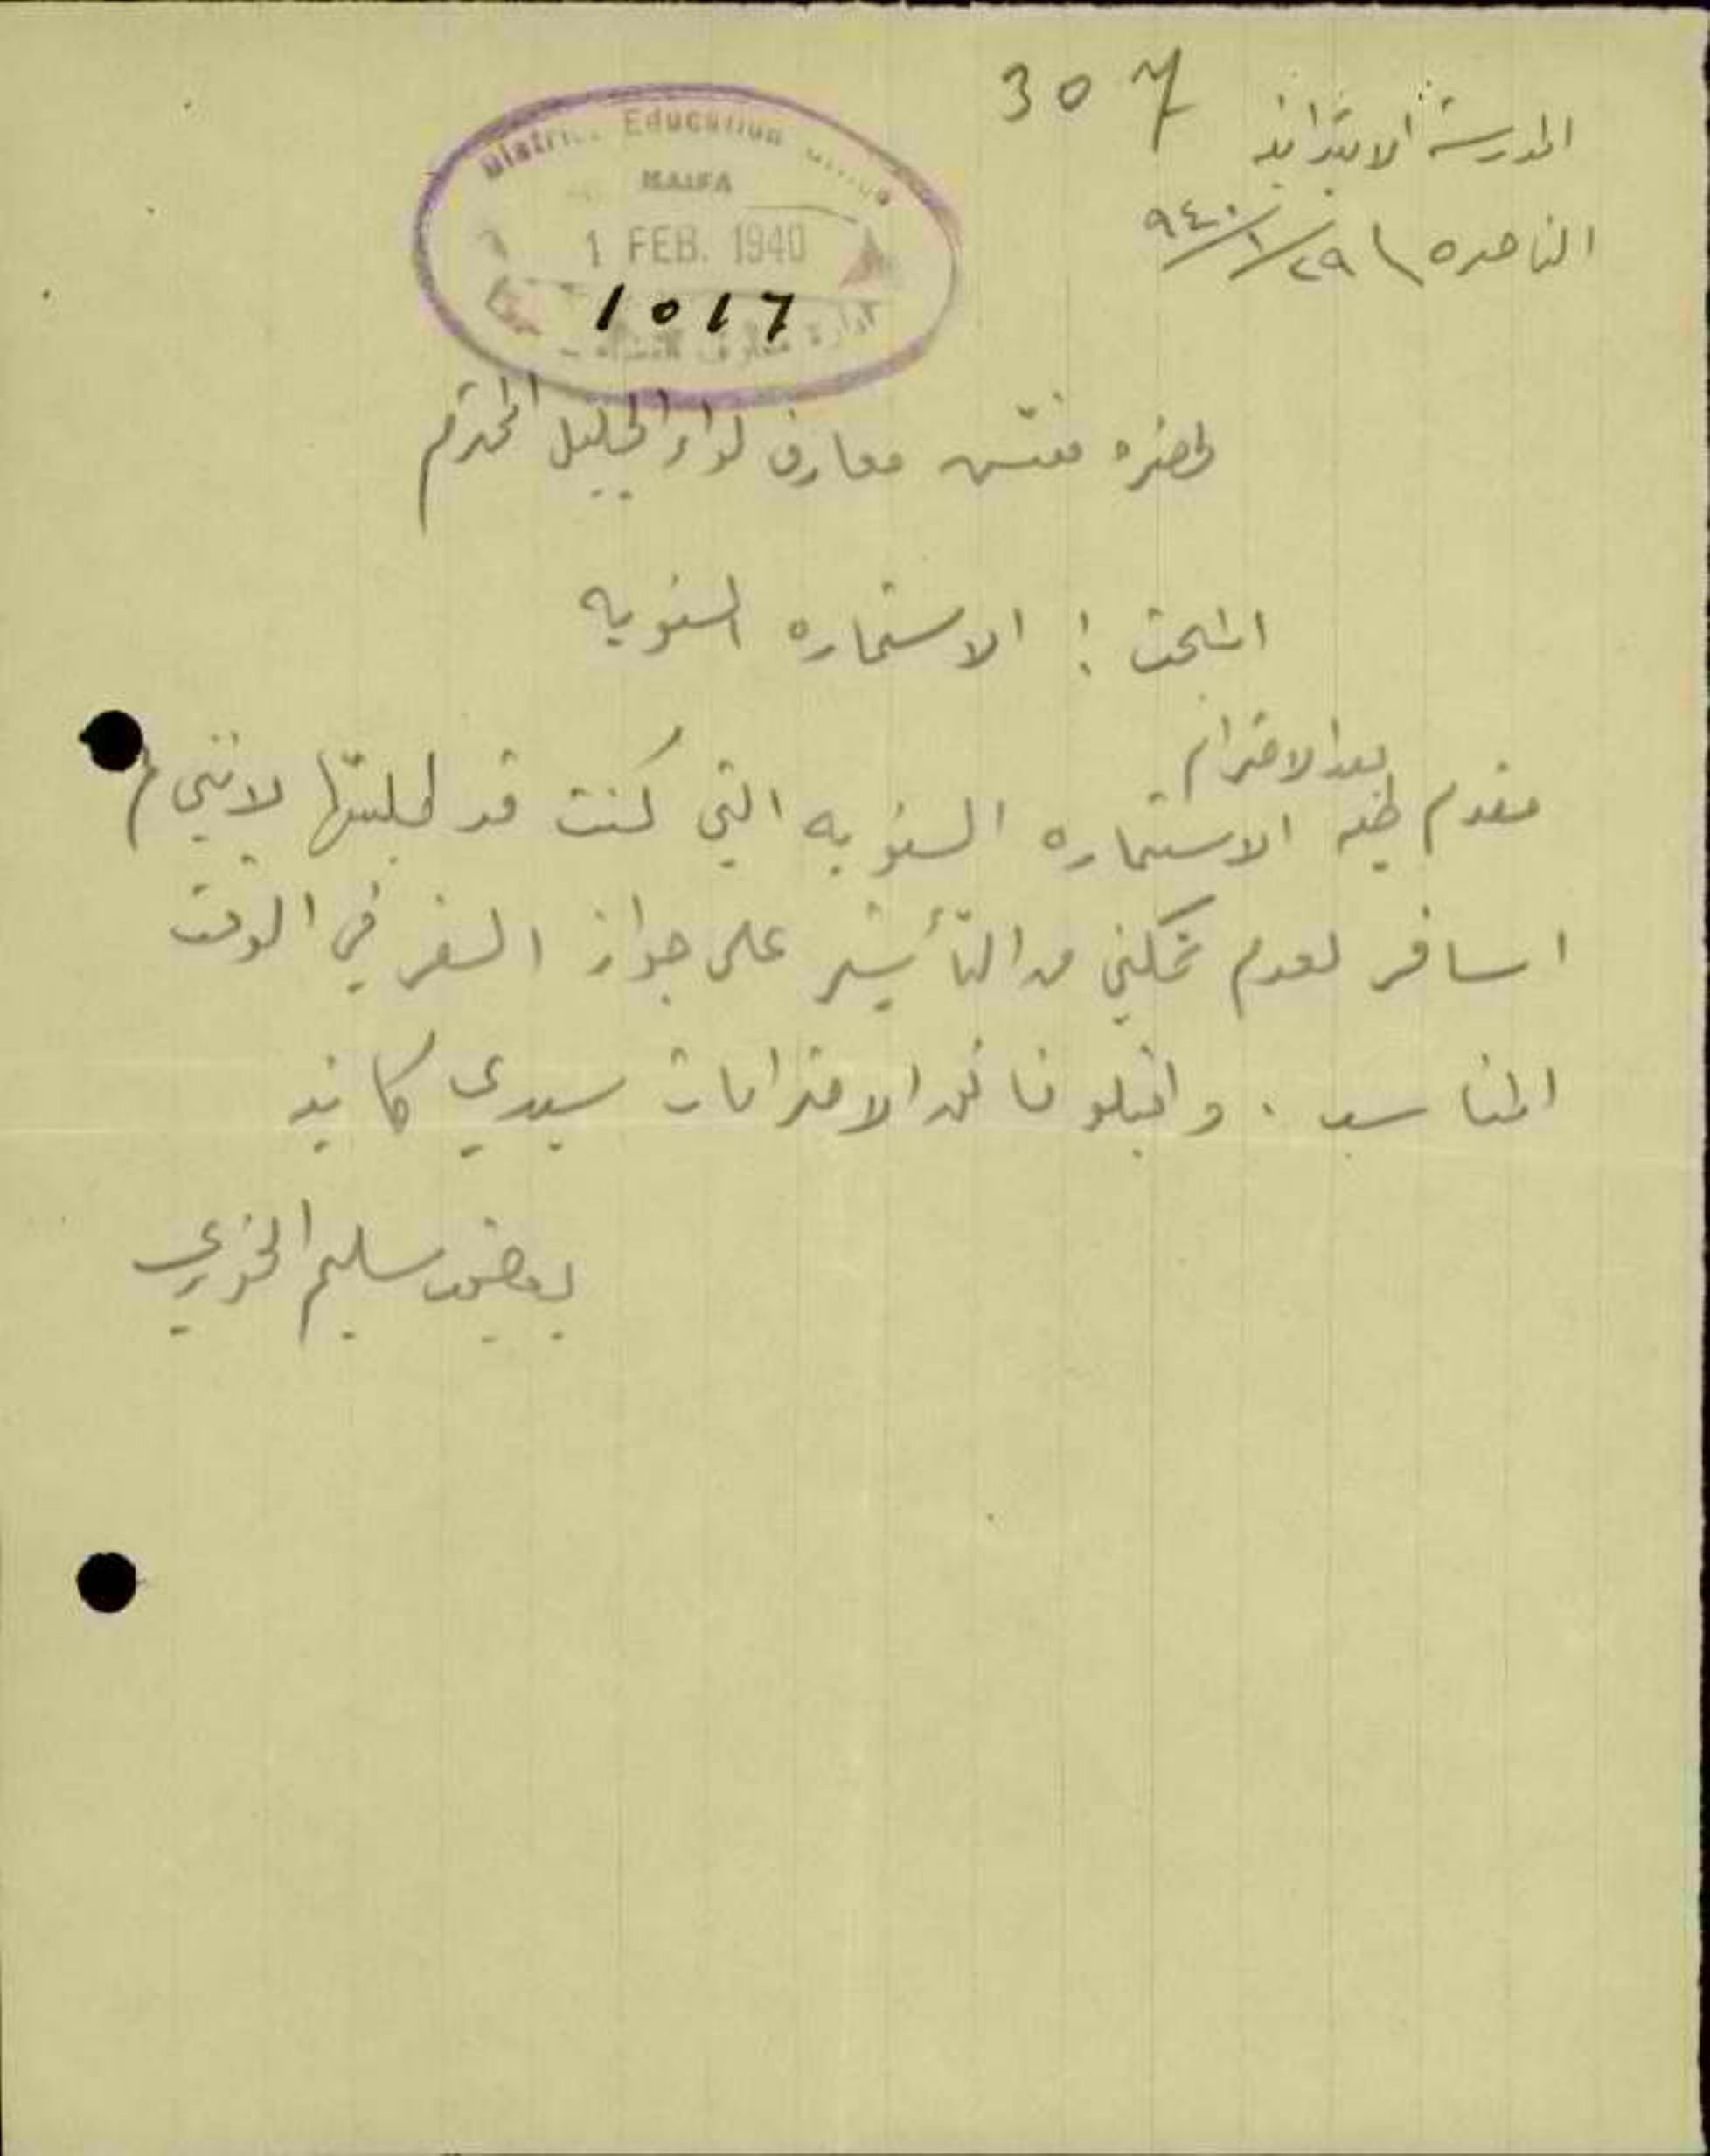 307
المدرسة الابتدائيه
الناصره \ ٢٩/١/٩٤٠
District Education Office
HAIFA
1 FEB. 1940
1017
ادارة معارف اللواء -
لحضره مفتش معارف لواء الجليل المحترم
المبحث : الاستماره السنويه
بعد الاحترام
مقدم طيه الاستماره السنويه التي كنت قد طلبتها لانني لم
اسافر لعدم تمكني من التأشير على جواز السفر في الوقت
المناسب . واقبلوا فائق الاحترامات سيدي
سليم الخوري